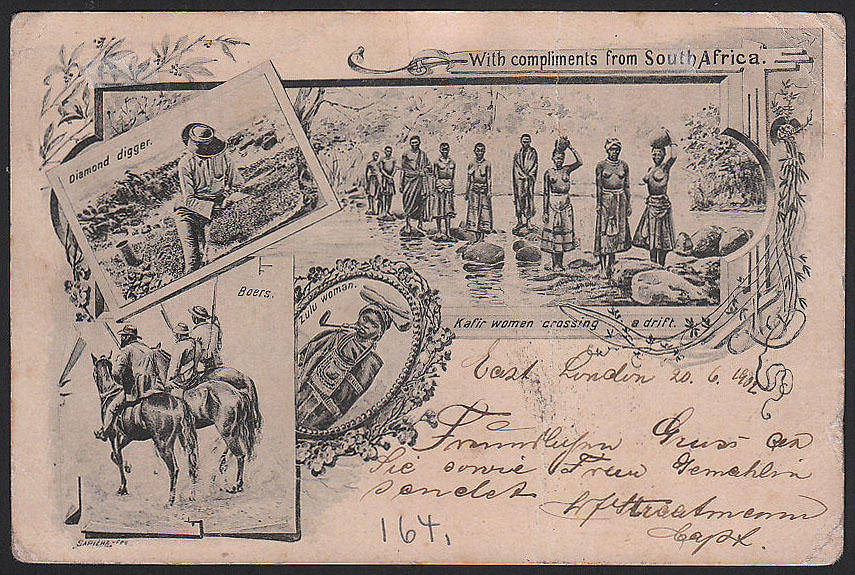 With compliments from South Africa.
Diamond digger.
Boers.
Zulu woman.
Kafir women crossing a drift.
East London 20. 6. 1902
Freundlichen Gruss an
Sie sowie Frau Gemahlin
sendet
Straatmann
Capt.
164.